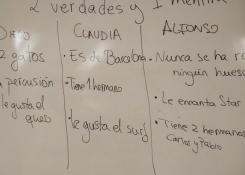 2 verdades y 1 mentira
CLAUDIA
ALFONSO
2 gatos
percusión
le gusta el
queso
• Es de Barcelona
• Tiene 1 hermano
• le gusta el surf
• Nunca se ha
ningún hueso
• Le encanta Star
• Tiene 2 hermanos
Carlos y Pablo